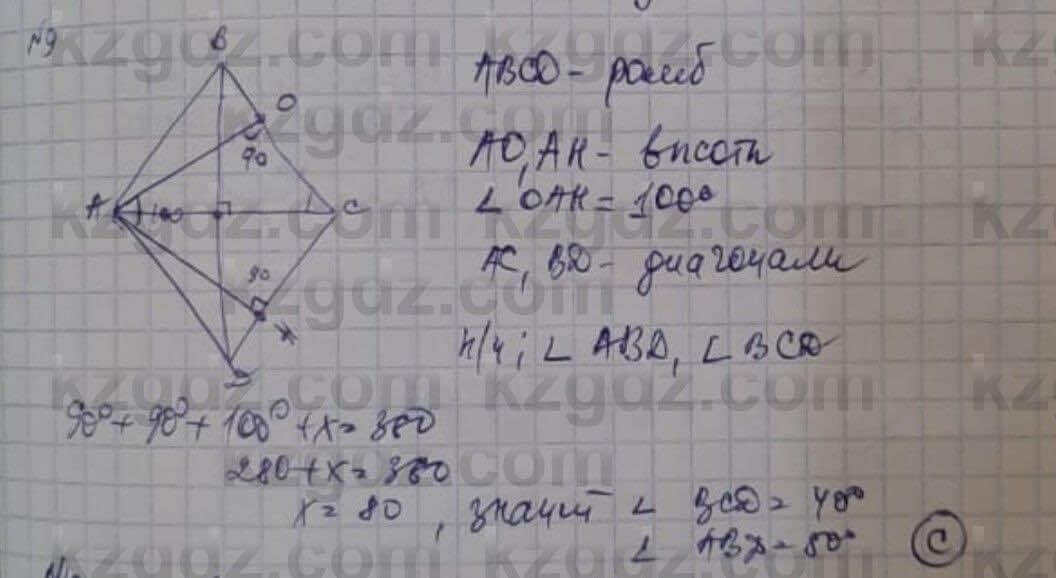 №9
B
O
90
A
100
C
90
H
D
ABCD - ромб
AO, AH - высоты
∠ OAH = 100°
AC, BD - диагонали
н/и; ∠ ABD, ∠ BCD
90° + 90° + 100° + x = 360
280 + x = 360
x = 80, значит ∠ BCD = 40°
∠ ABD = 50°
C
kzgdz.com